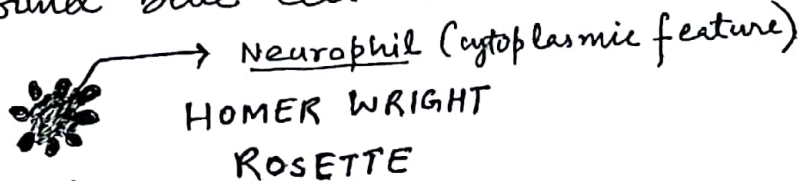 blue
Neurophil (cytoplasmic feature)
HOMER WRIGHT
ROSETTE